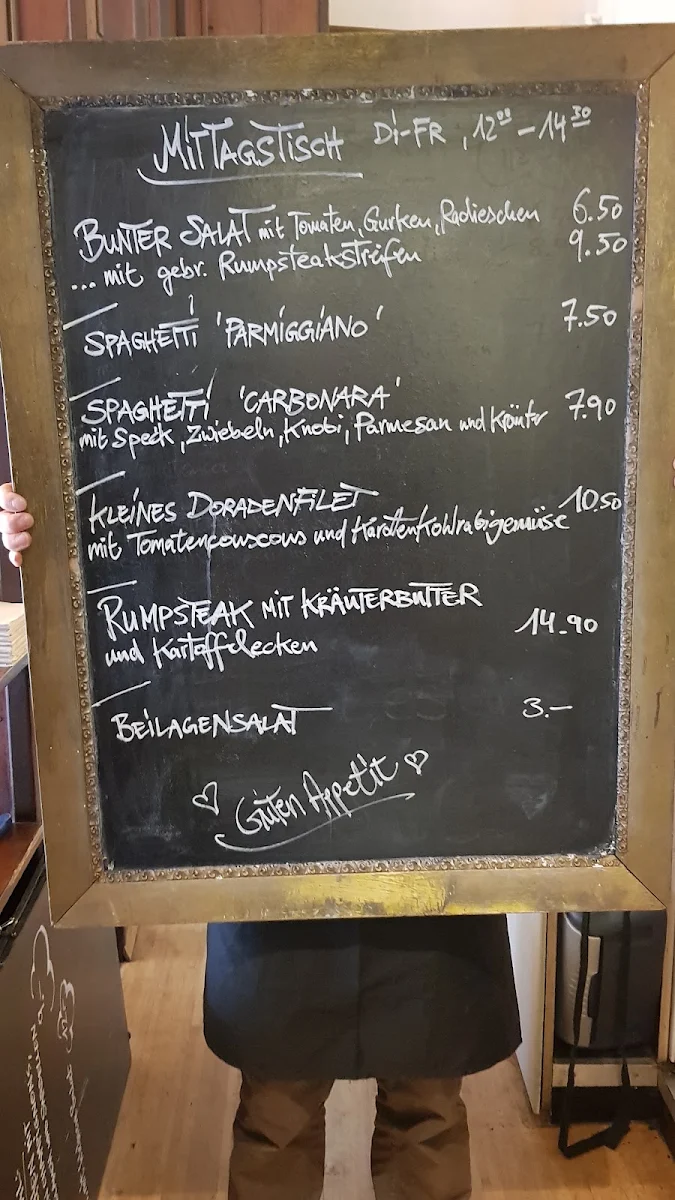 MITTAGSTISCH Di-FR, 12⁰⁰ - 14³⁰
BUNTER SALAT mit Tomaten, Gurken, Radieschen 6.50
... mit gebr. Rumpsteakstreifen 9.50
SPAGHETTI 'PARMIGGIANO' 7.50
SPAGHETTI 'CARBONARA' 7.90
mit Speck, Zwiebeln, Knobi, Parmesan und Kräuter
KLEINES DORADENFILET 10.50
mit Tomatencouscous und Karottenkohlrabigemüse
RUMPSTEAK MIT KRÄUTERBUTTER 14.90
und Kartoffelecken
BEILAGENSALAT 3.-
♡ Guten Appetit ♡